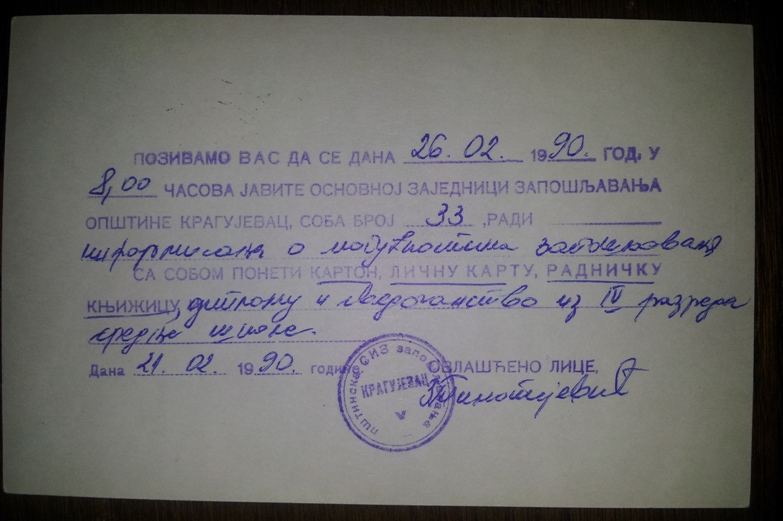 ПОЗИВАМО ВАС ДА СЕ ДАНА 26. 02. 1990. ГОД. У
8,00 ЧАСОВА ЈАВИТЕ ОСНОВНОЈ ЗАЈЕДНИЦИ ЗАПОШЉАВАЊА
ОПШТИНЕ КРАГУЈЕВАЦ, СОБА БРОЈ 33 ,РАДИ
информисања о могућностима запошљавања
СА СОБОМ ПОНЕТИ КАРТОН, ЛИЧНУ КАРТУ, РАДНИЧКУ
КЊИЖИЦУ, диплому и сведочанство из IV разреда
средње школе.
Дана 21. 02. 1990. годи ОВЛАШЋЕНО ЛИЦЕ,
КРАГУЈЕВАЦ
V